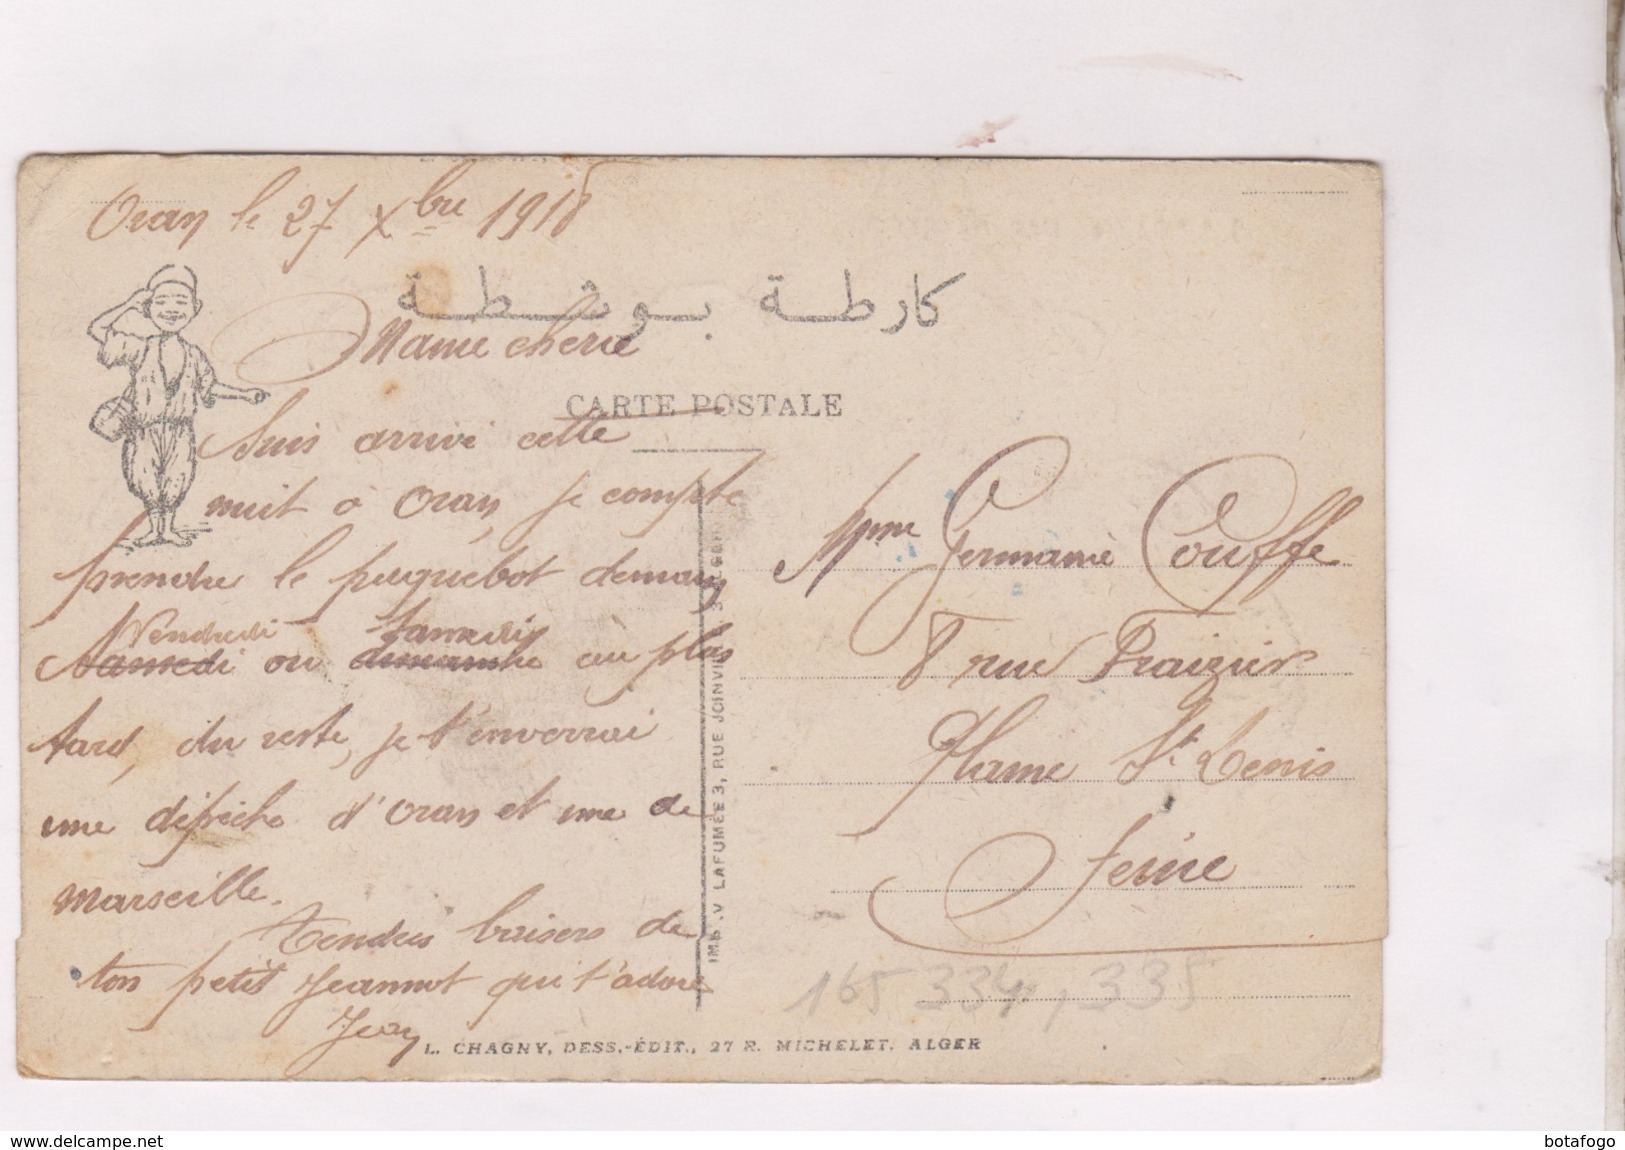 Oran le 27 Xbre 1918
كارطة بوسطة
Mamie cherie
CARTE POSTALE
Suis arrivé cette
nuit à Oran, je compte
prendre le paquebot demain
Vendredi Samedi
Samedi ou dimanche au plus
tard, du reste, je t'enverrai
une dépêche d'Oran et une de
Marseille.
Tendres baisers de
ton petit Jeannot qui t'adore
Jean
Mme Germaine Couffe
8 rue Fraizier
Plaine St. Denis
Seine
165 334, 335
IMP. V LAFUMÉE 3, RUE JOINVILLE, 3 ALGER
L. CHAGNY, DESS.-ÉDIT., 27 R. MICHELET. ALGER
www.delcampe.net
botafogo